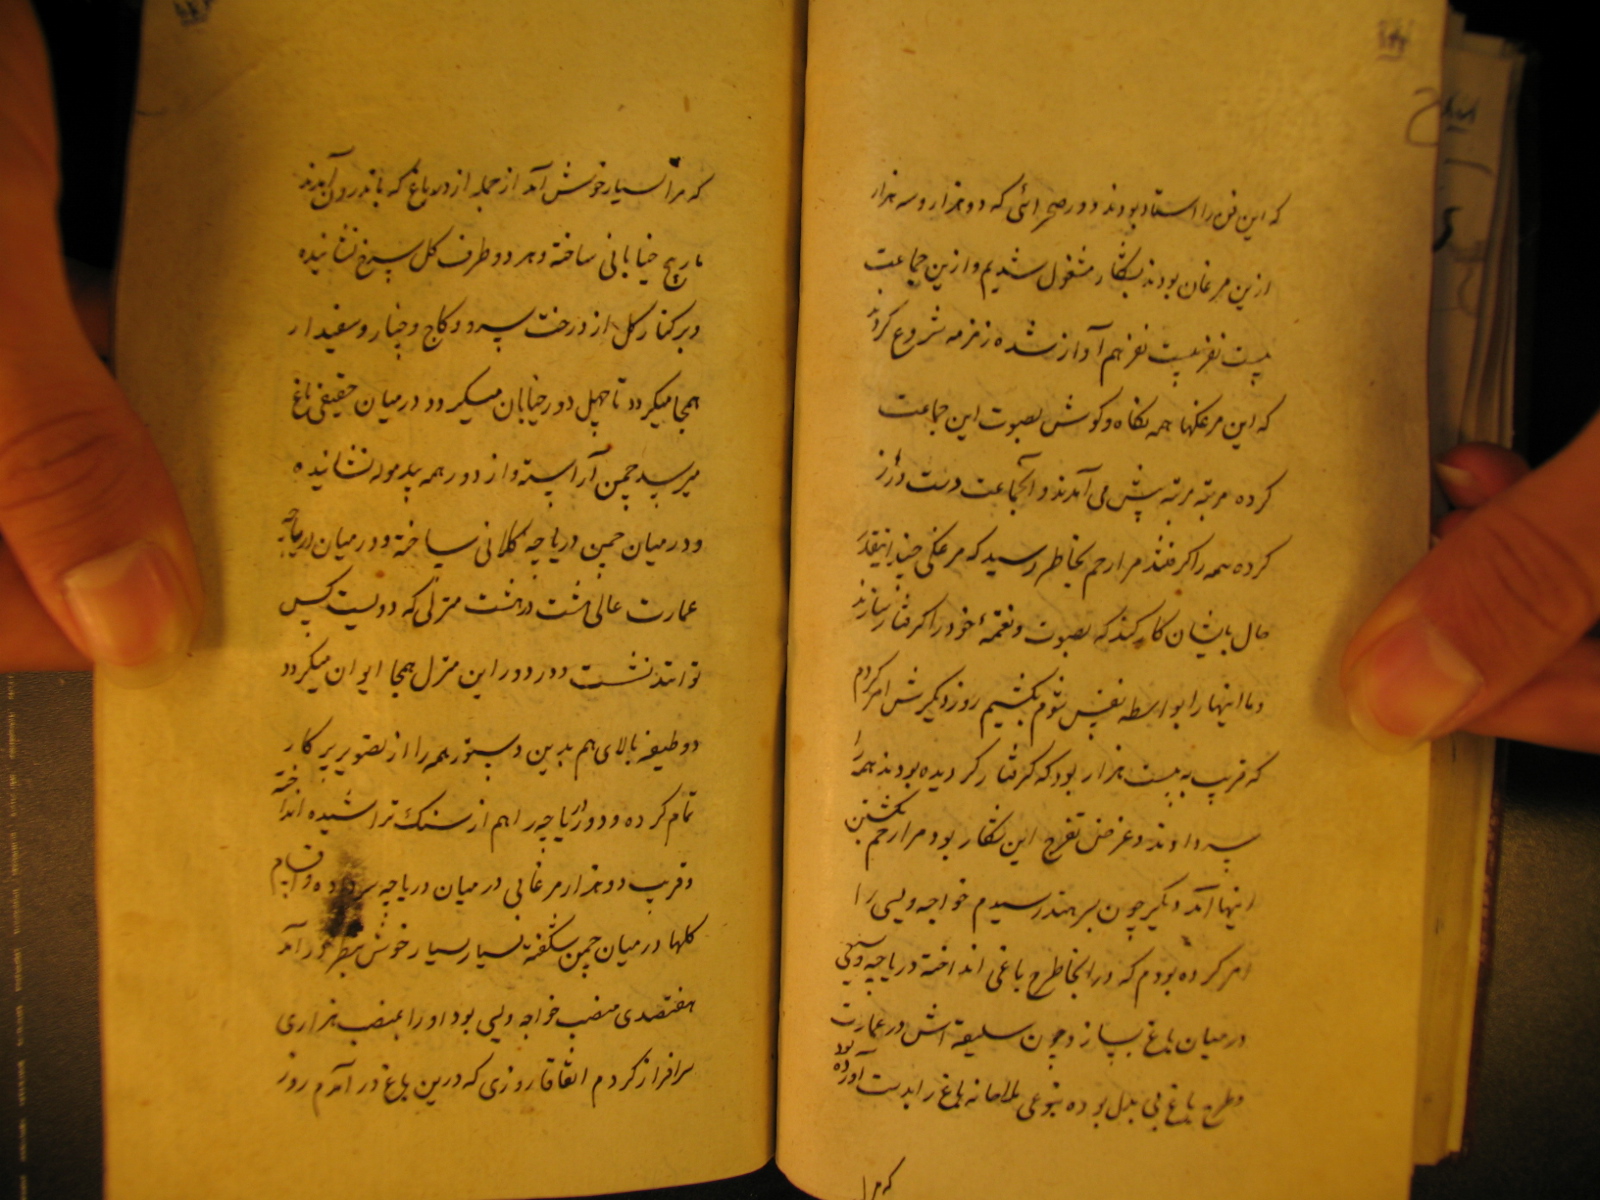 که این فن را استاد بودند و در صحرائی که دو هزار و سه هزار
ازین مرغان بودند بشکار مشغول شدیم و ازین جماعت
بیست نفر بیست نفر هم آواز شده زمزمه شروع کردند
که این مرغکها همه نگاه و گوش بصوت این جماعت
کرده مرتبه مرتبه پیش می آمدند و آنجماعت دست دراز
کرده همه را گرفتند مرا رحم بخاطر رسید که مرغکی چند اینقدر
حال بایشان کار کند که بصوت و نغمهٔ خود را گرفتار سازند
و ما اینها را بواسطه نفس شوم بکشیم روز دیگرش امر کردم
که قریب به بیست هزار بود که گرفتار گردیده بودند همه را
سر دادند و غرض تفرج این شکار بود مرا رحم بکشتن
اینها آمد دیگر چون بسرهند رسیدم خواجه ویسی را
امر کرده بودم که در آنجا طرح باغی انداخته دریاچه وسیعی
در میان باغ بسازد چون سلیقه اش در عمارت
و طرح باغ بی بدل بوده بنوعی باغ را بدست آورده بود
که مرا
که مرا بسیار خوش آمد از جمله از در باغ که باندرون آمدند
مارپیچ خیابانی ساخته و هر دو طرف گل سرخ نشانیده
و بر کنار گل از درخت سرو و کاج و چنار و سفیدار
همجا میگردد تا چهل دور خیابان میگردد و در میان حقیقی باغ
میرسد چمن آراسته و از دور همه نشانیده
و در میان چمن دریاچه کلانی ساخته و در میان دریاچه
عمارت عالی هشت در هشت منزلی که دویست کس
توانند نشست و در دور این منزل همجا ایوان میگردد
دو طبقه بالای هم بدین دستور همه را از تصویر پرکار
تمام کرده و دور دریاچه را هم از سنگ تراشیده انداخته
و قریب دو هزار مرغابی در میان دریاچه سر داده و اقسام
گلها در میان چمن شگفته بسیار بسیار خوش بنظر در آمد
هفتصدی منصب خواجه ویسی بود او را بمنصب هزاری
سرافراز کردم اتفاقا روزی که درین باغ در آمدم روز